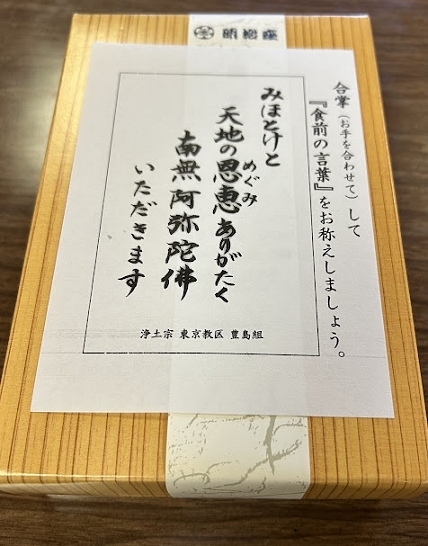 明治座
合掌（お手を合わせて）して
『食前の言葉』をお称えしましょう。
みほとけと
天地の恩恵ありがたく
めぐみ
南無阿弥陀佛
いただきます
浄土宗 東京教区 豊島組